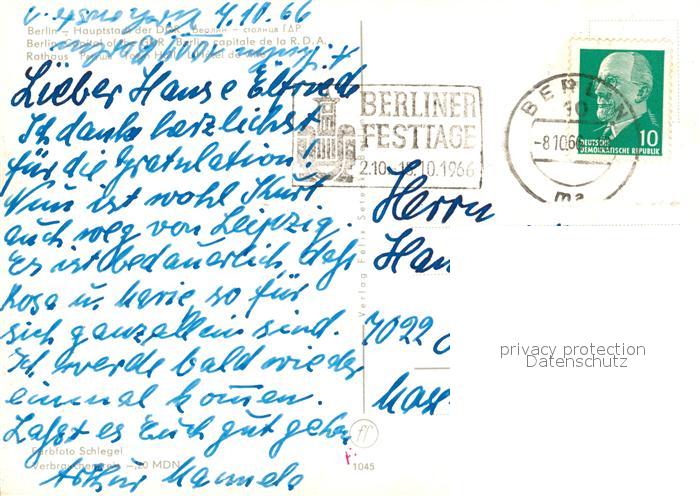 4.10.66
Berlin – Hauptstadt der DDR Берлин – столица ГДР
Berlin Capital of the GDR Berlin capitale de la R.D.A.
Rathaus
Lieber Hans & Elfriede
Ich danke herzlichst
für die Gratulation!
Nun ist wohl Kurt
auch weg von Leipzig.
Es ist bedauerlich, daß
Rosa u. Marie so für
sich ganz allein sind.
Ich werde bald wieder
einmal kommen.
Laßt es Euch gut gehen
Farbfoto Schlegel
Verbraucherpreis –,20 MDN
Arthur
1045
Verlag Felix
BERLINER
FESTTAGE
2.10.-16.10.1966
BERLIN
10
-8.10.66
10
DEUTSCHE
DEMOKRATISCHE REPUBLIK
Herrn
Han
7022
privacy protection
Datenschutz